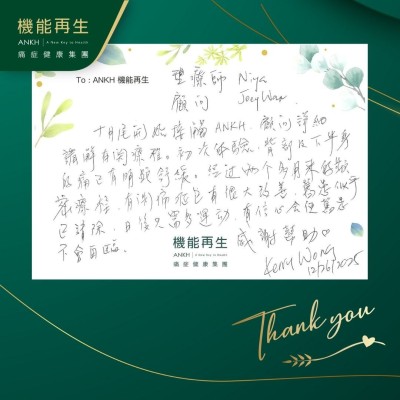 機能再生
ANKH | A New Key to Health
痛症健康集團
To : ANKH 機能再生
整療師 Niya
顧問 Joey Wan
十月尾開始接觸 ANKH. 顧問詳細
講解有關療程. 初次体驗, 背部及下半身
痠痛已有明顯舒緩. 經過兩个多月來的
療程, 有關痛症已有很大改善, 萬患似乎
已清除, 日後只需多運動, 有信心會使
不會再臨. 感謝幫助♡
Kenny Wong
12/26/2025
機能再生
ANKH | A New Key to Health
痛症健康集團
Thank you